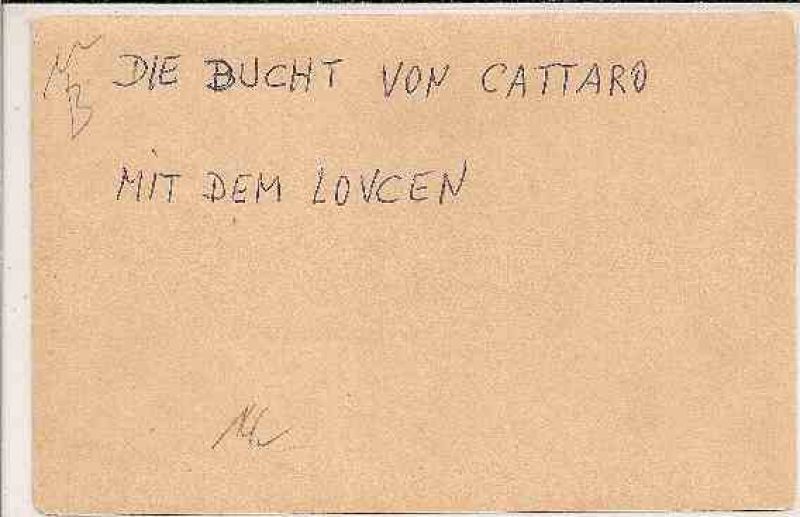 DIE BUCHT VON CATTARO
MIT DEM LOVCEN